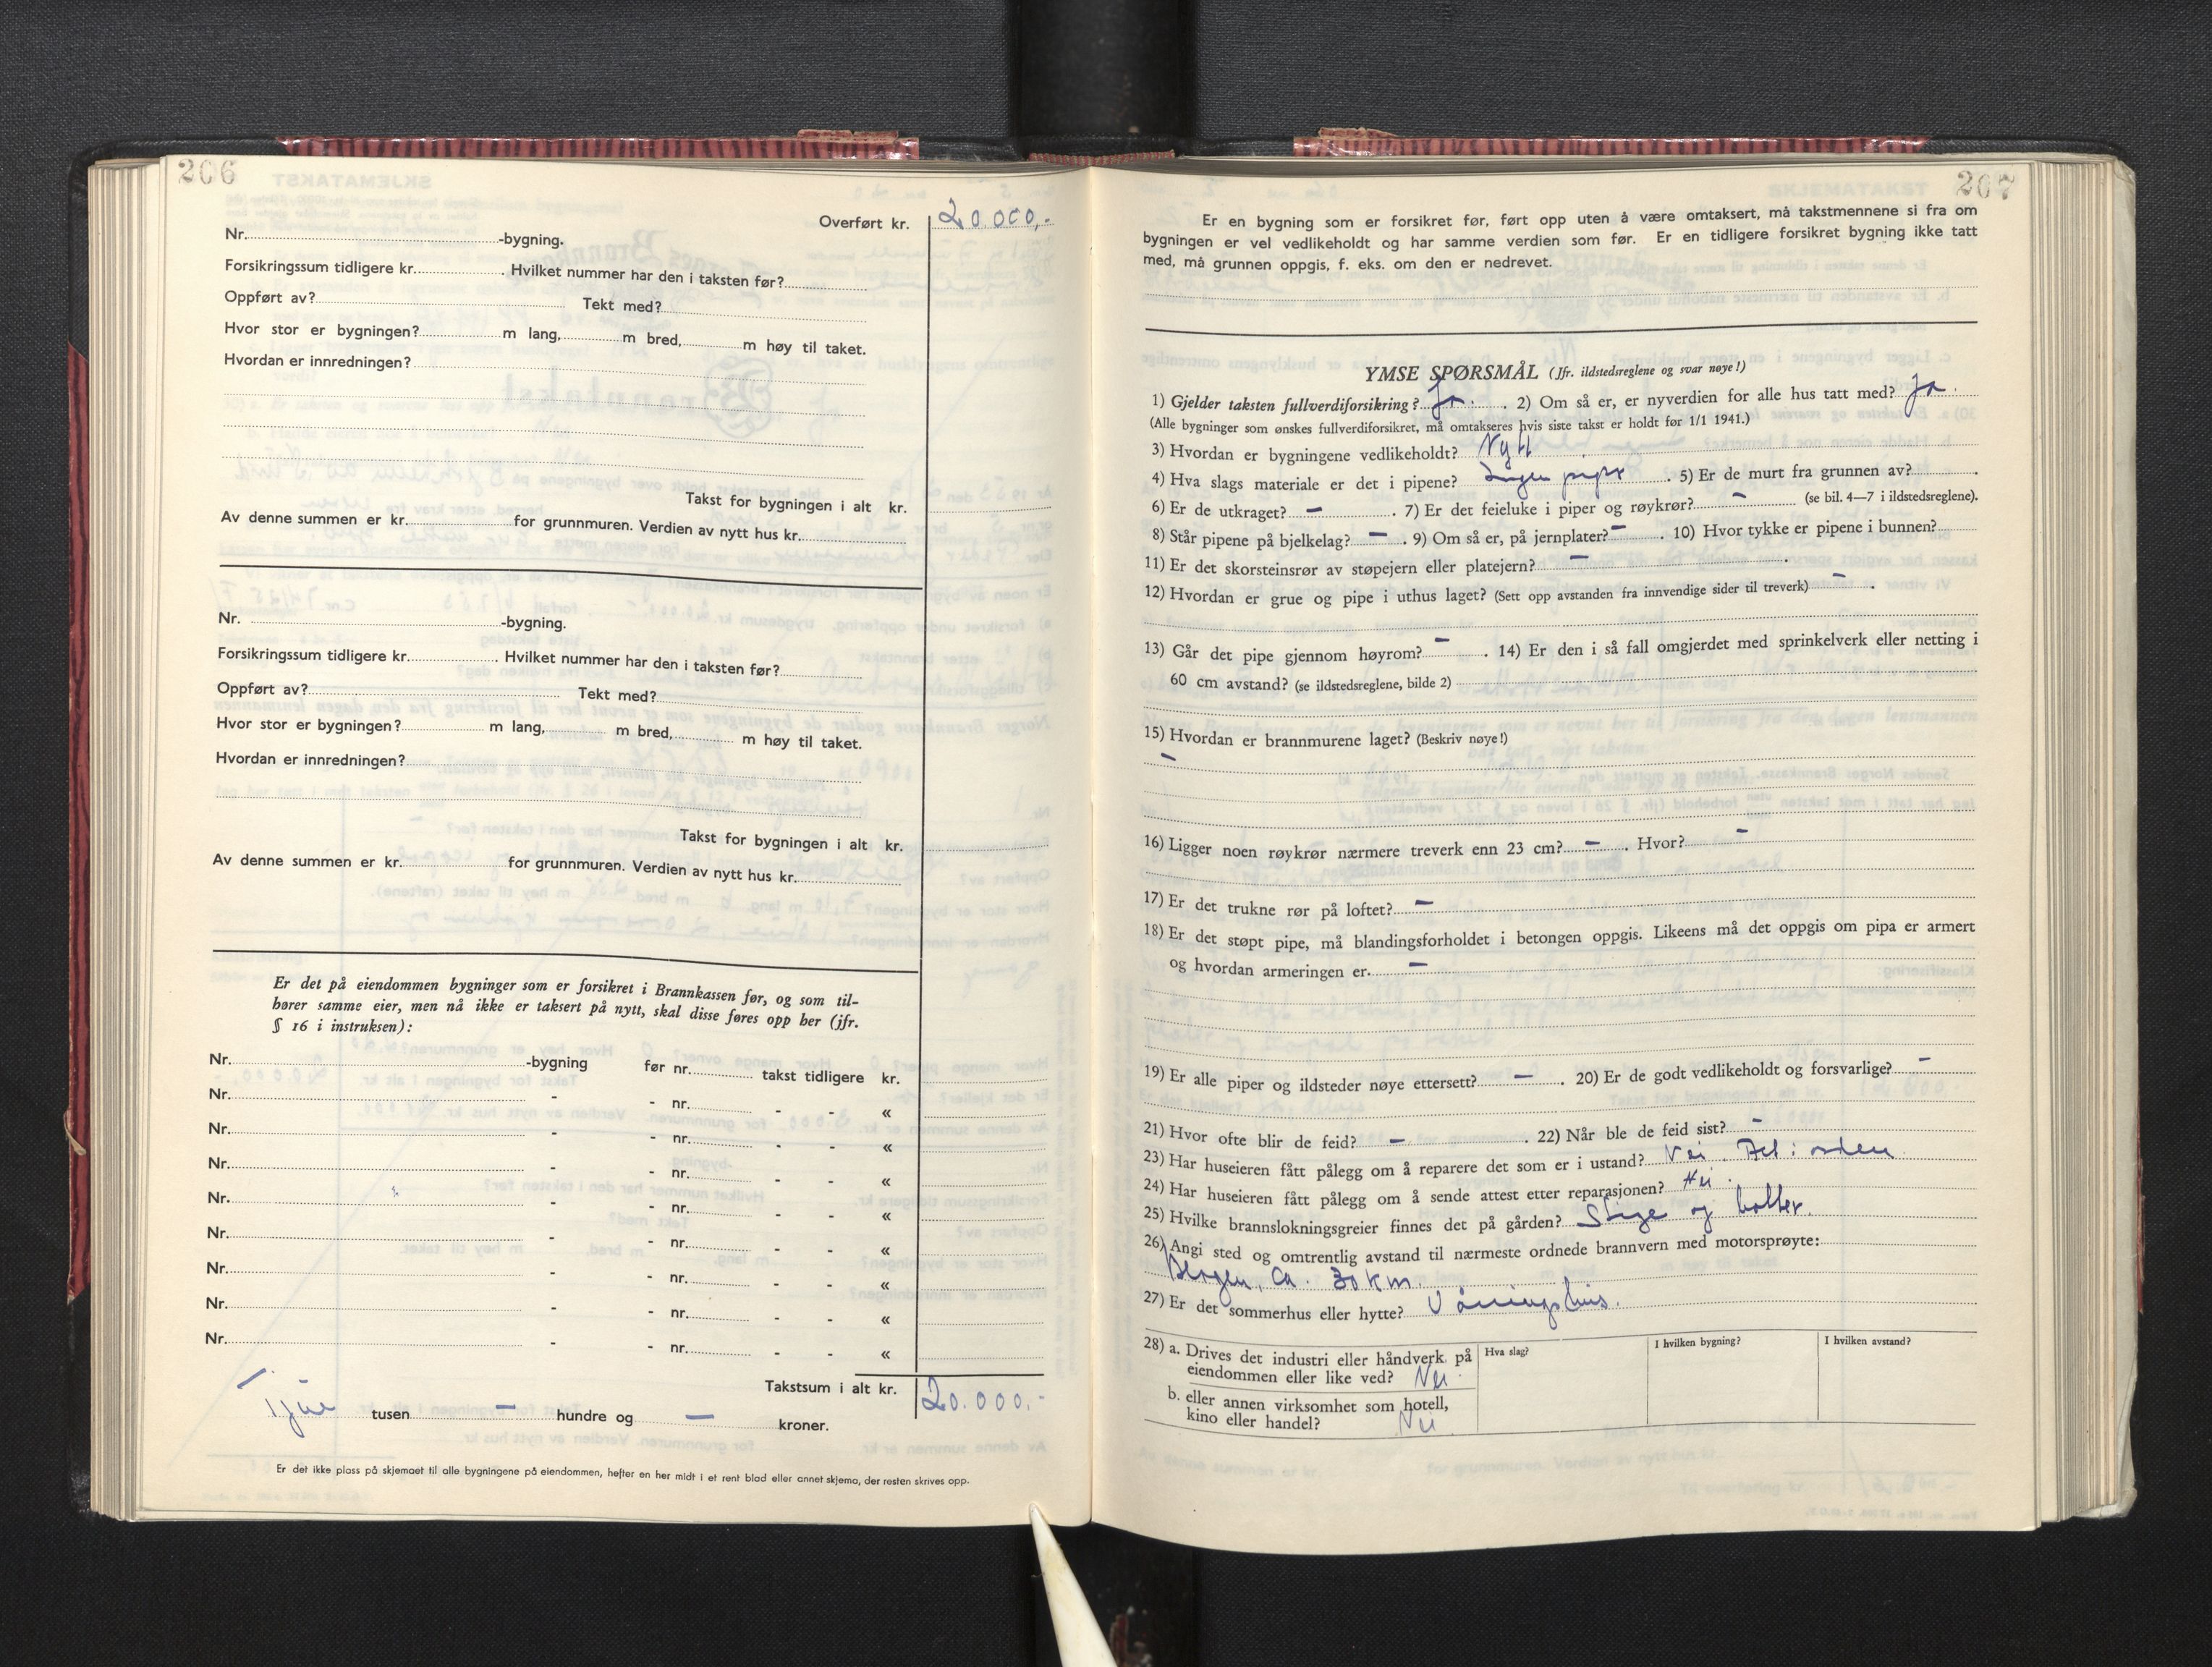 206
Overført kr. 20.000,-
Nr. -bygning.
Forsikringssum tidligere kr. . Hvilket nummer har den i taksten før?
Oppført av? Tekt med?
Hvor stor er bygningen? m lang, m bred, m høy til taket.
Hvordan er innredningen?
Takst for bygningen i alt kr.
Av denne summen er kr. for grunnmuren. Verdien av nytt hus kr.
Nr. -bygning.
Forsikringssum tidligere kr. . Hvilket nummer har den i taksten før?
Oppført av? Tekt med?
Hvor stor er bygningen? m lang, m bred, m høy til taket.
Hvordan er innredningen?
Takst for bygningen i alt kr.
Av denne summen er kr. for grunnmuren. Verdien av nytt hus kr.
Er det på eiendommen bygninger som er forsikret i Brannkassen før, og som til-
hører samme eier, men nå ikke er taksert på nytt, skal disse føres opp her (jfr.
§ 16 i instruksen):
Nr. -bygning før nr. takst tidligere kr.
Nr. - - nr. - - «
Nr. - - nr. - - «
Nr. - - nr. - - «
Nr. - - nr. - - «
Nr. - - nr. - - «
Nr. - - nr. - - «
Nr. - - nr. - - «
Nr. - - nr. - - «
Takstsum i alt kr. 20.000,-
Tjue tusen — hundre og — kroner.
Er det ikke plass på skjemaet til alle bygningene på eiendommen, hefter en her midt i et rent blad eller annet skjema, der resten skrives opp.
207
Er en bygning som er forsikret før, ført opp uten å være omtaksert, må takstmennene si fra om
bygningen er vel vedlikeholdt og har samme verdien som før. Er en tidligere forsikret bygning ikke tatt
med, må grunnen oppgis, f. eks. om den er nedrevet.
YMSE SPØRSMÅL (Jfr. ildstedsreglene og svar nøye!)
1) Gjelder taksten fullverdiforsikring? Ja. . 2) Om så er, er nyverdien for alle hus tatt med? Ja.
(Alle bygninger som ønskes fullverdiforsikret, må omtakseres hvis siste takst er holdt før 1/1 1941.)
3) Hvordan er bygningene vedlikeholdt? Nytt .
4) Hva slags materiale er det i pipene? Ingen pipe . 5) Er de murt fra grunnen av? .
6) Er de utkraget? — . 7) Er det feieluke i piper og røykrør? — (se bil. 4—7 i ildstedsreglene).
8) Står pipene på bjelkelag? — . 9) Om så er, på jernplater? — . 10) Hvor tykke er pipene i bunnen?
11) Er det skorsteinsrør av støpejern eller platejern? — .
12) Hvordan er grue og pipe i uthus laget? (Sett opp avstanden fra innvendige sider til treverk) — .
13) Går det pipe gjennom høyrom? — . 14) Er den i så fall omgjerdet med sprinkelverk eller netting i
60 cm avstand? (se ildstedsreglene, bilde 2)
15) Hvordan er brannmurene laget? (Beskriv nøye!)
—
16) Ligger noen røykrør nærmere treverk enn 23 cm? — . Hvor? —
17) Er det trukne rør på loftet? —
18) Er det støpt pipe, må blandingsforholdet i betongen oppgis. Likeens må det oppgis om pipa er armert
og hvordan armeringen er. —
19) Er alle piper og ildsteder nøye ettersett? — . 20) Er de godt vedlikeholdt og forsvarlige? —
21) Hvor ofte blir de feid? — . 22) Når ble de feid sist? —
23) Har huseieren fått pålegg om å reparere det som er i ustand? Nei. Alt i orden
24) Har huseieren fått pålegg om å sende attest etter reparasjonen? Nei.
25) Hvilke brannslokningsgreier finnes det på gården? Stige og bøtter.
26) Angi sted og omtrentlig avstand til nærmeste ordnede brannvern med motorsprøyte:
Bergen, ca. 30 km.
27) Er det sommerhus eller hytte? Våningshus.
28) a. Drives det industri eller håndverk på Hva slag? I hvilken bygning? I hvilken avstand?
eiendommen eller like ved? Nei
b. eller annen virksomhet som hotell,
kino eller handel? Nei